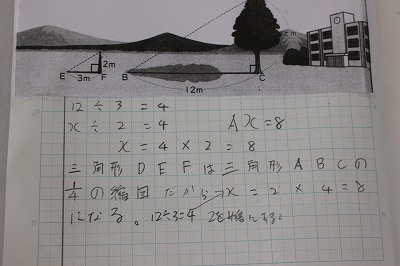 xm
2m
E 3m F B C
12m
12 ÷ 3 = 4
x ÷ 2 = 4 A x = 8
x = 4 × 2 = 8
三角形DEFは三角形ABCの
1/4の縮図だから→x = 2 × 4 = 8
になる。 12÷3=4 2を4倍にする